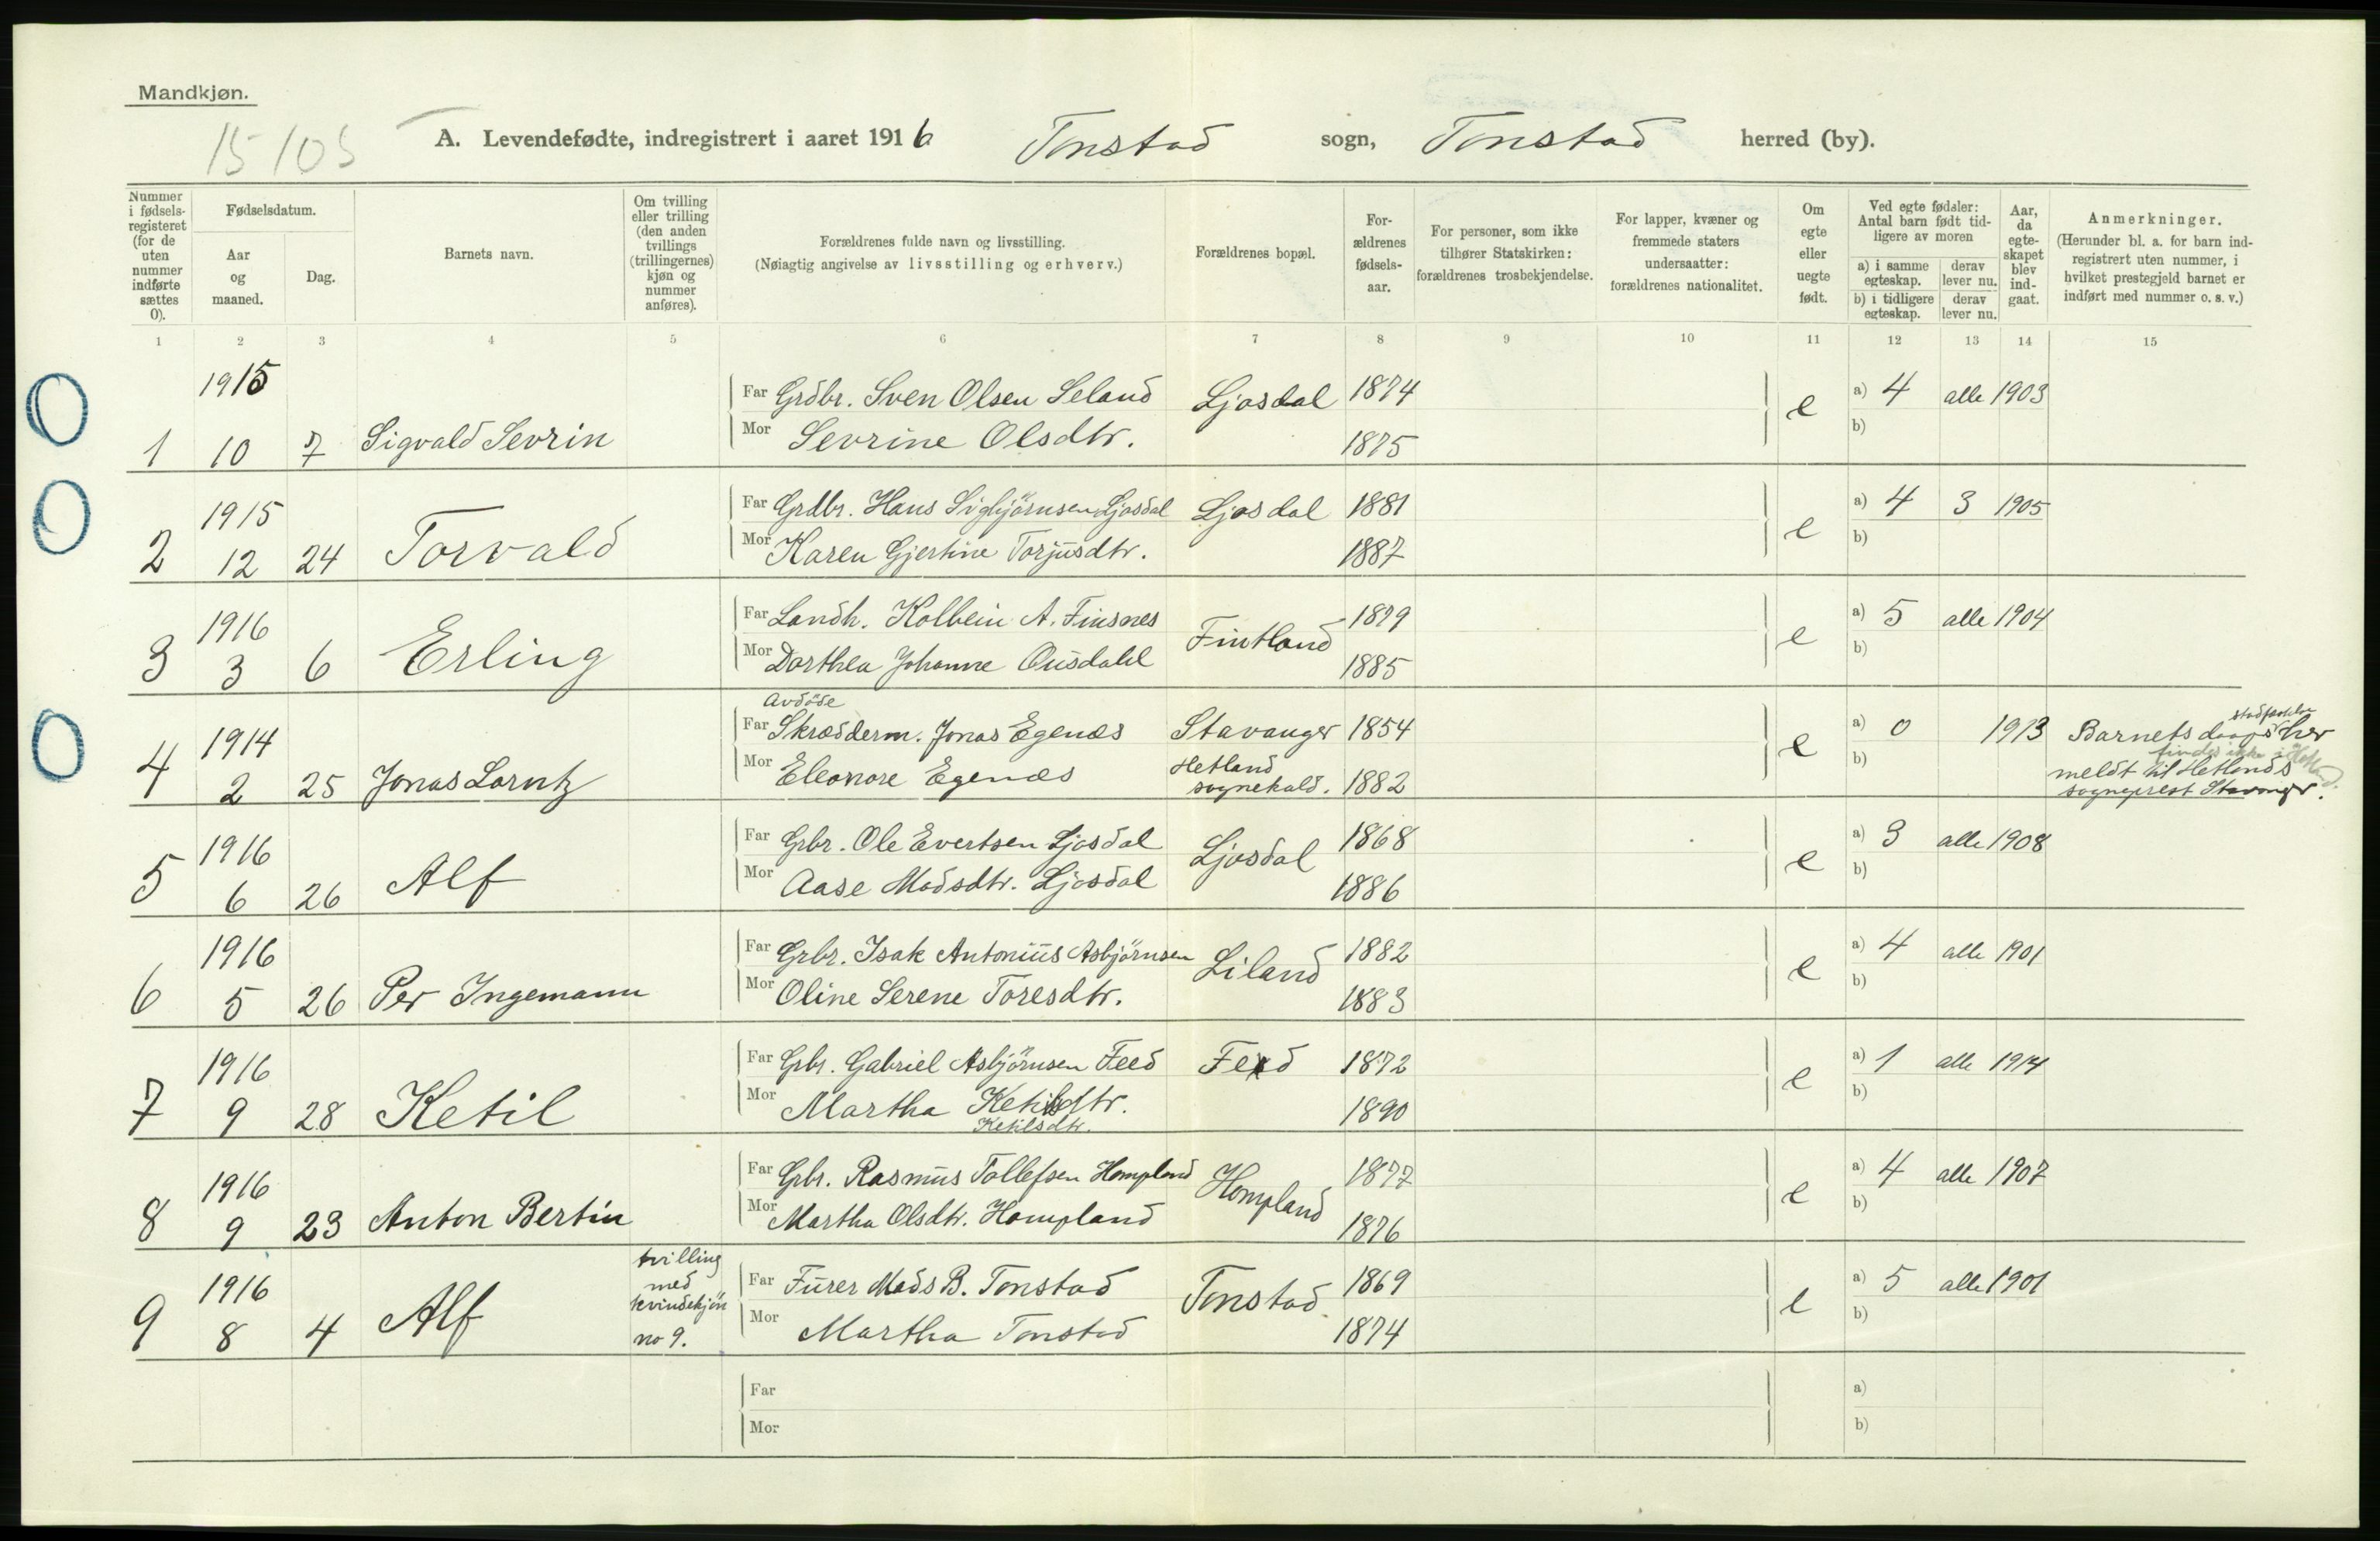 Mandkjøn.
15105
A. Levendefødte, indregistrert i aaret 1916 Tonstad sogn, Tonstad herred (by).
Nummer i fødsels-registeret (for de uten nummer indførte sættes 0).
Fødselsdatum.
Aar og maaned.
Dag.
Barnets navn.
Om tvilling eller trilling (den anden tvillings (trillingernes) kjøn og nummer anføres).
Forældrenes fulde navn og livsstilling.
(Nøiagtig angivelse av livsstilling og erhverv.)
Forældrenes bopæl.
For-ældrenes fødsels-aar.
For personer, som ikke tilhører Statskirken: forældrenes trosbekjendelse.
For lapper, kvæner og fremmede staters undersaatter: forældrenes nationalitet.
Om egte eller uegte født.
Ved egte fødsler: Antal barn født tid-ligere av moren
a) i samme egteskap.
derav lever nu.
b) i tidligere egteskap.
derav lever nu.
Aar, da egte-skapet blev ind-gaat.
Anmerkninger.
(Herunder bl. a. for barn ind-registrert uten nummer, i hvilket prestegjeld barnet er indført med nummer o. s. v.)
1 2 3 4 5 6 7 8 9 10 11 12 13 14 15
1915 Far Grdbr. Sven Olsen Seland Ljosdal 1874 e a) 4 alle 1903
1 10 7 Sigvald Sevrin Mor Sevrine Olsdtr. 1875 b)
1915 Far Grdbr. Hans Sigbjörnsen Ljosdal Ljosdal 1881 e a) 4 3 1905
2 12 24 Torvald Mor Karen Gjertine Torjusdtr. 1887 b)
1916 Far Landh. Kolbein A. Finsnes Fintland 1879 e a) 5 alle 1904
3 3 6 Erling Mor Dorthea Johanne Ousdahl 1885 b)
avdöde
1914 Far Skræderm. Jonas Egenæs Stavanger 1854 e a) 0 1913 Barnets daap her
4 2 25 Jonas Larntz Mor Eleonore Egenæs Hetland sognekald. 1882 b) meldt til Hetlands
findes ikke i
sogneprest Stavanger.
1916 Far Grbr. Ole Evertsen Ljosdal Ljosdal 1868 e a) 3 alle 1908
5 6 26 Alf Mor Aase Madsdtr. Ljosdal 1886 b)
1916 Far Grbr. Isak Antonius Asbjörnsen Liland 1882 e a) 4 alle 1901
6 5 26 Per Ingemann Mor Oline Serene Toresdtr. 1883 b)
1916 Far Grbr. Gabriel Asbjörnsen Feed Feed 1872 e a) 1 alle 1914
7 9 28 Ketil Mor Martha Ketilsdtr. 1890 b)
Ketilsdtr.
1916 Far Grbr. Rasmus Tollefsen Hompland Hompland 1877 e a) 4 alle 1907
8 9 23 Anton Bertin Mor Martha Olsdtr. Hompland 1876 b)
tvilling
med
kvindekjön
no 9.
1916 Far Furer Mads B. Tonstad Tonstad 1869 e a) 5 alle 1901
9 8 4 Alf Mor Martha Tonstad 1874 b)
Far a)
Mor b)